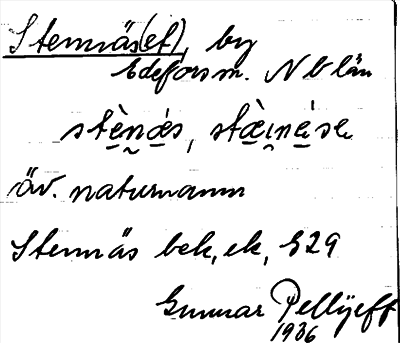 Stennäs(et), by
Edeforsm. Nb län
stènás, stæ̀ináse
äv. naturnamn
Stennäs bek, ek, S29
Gunnar Pellijeff
1936